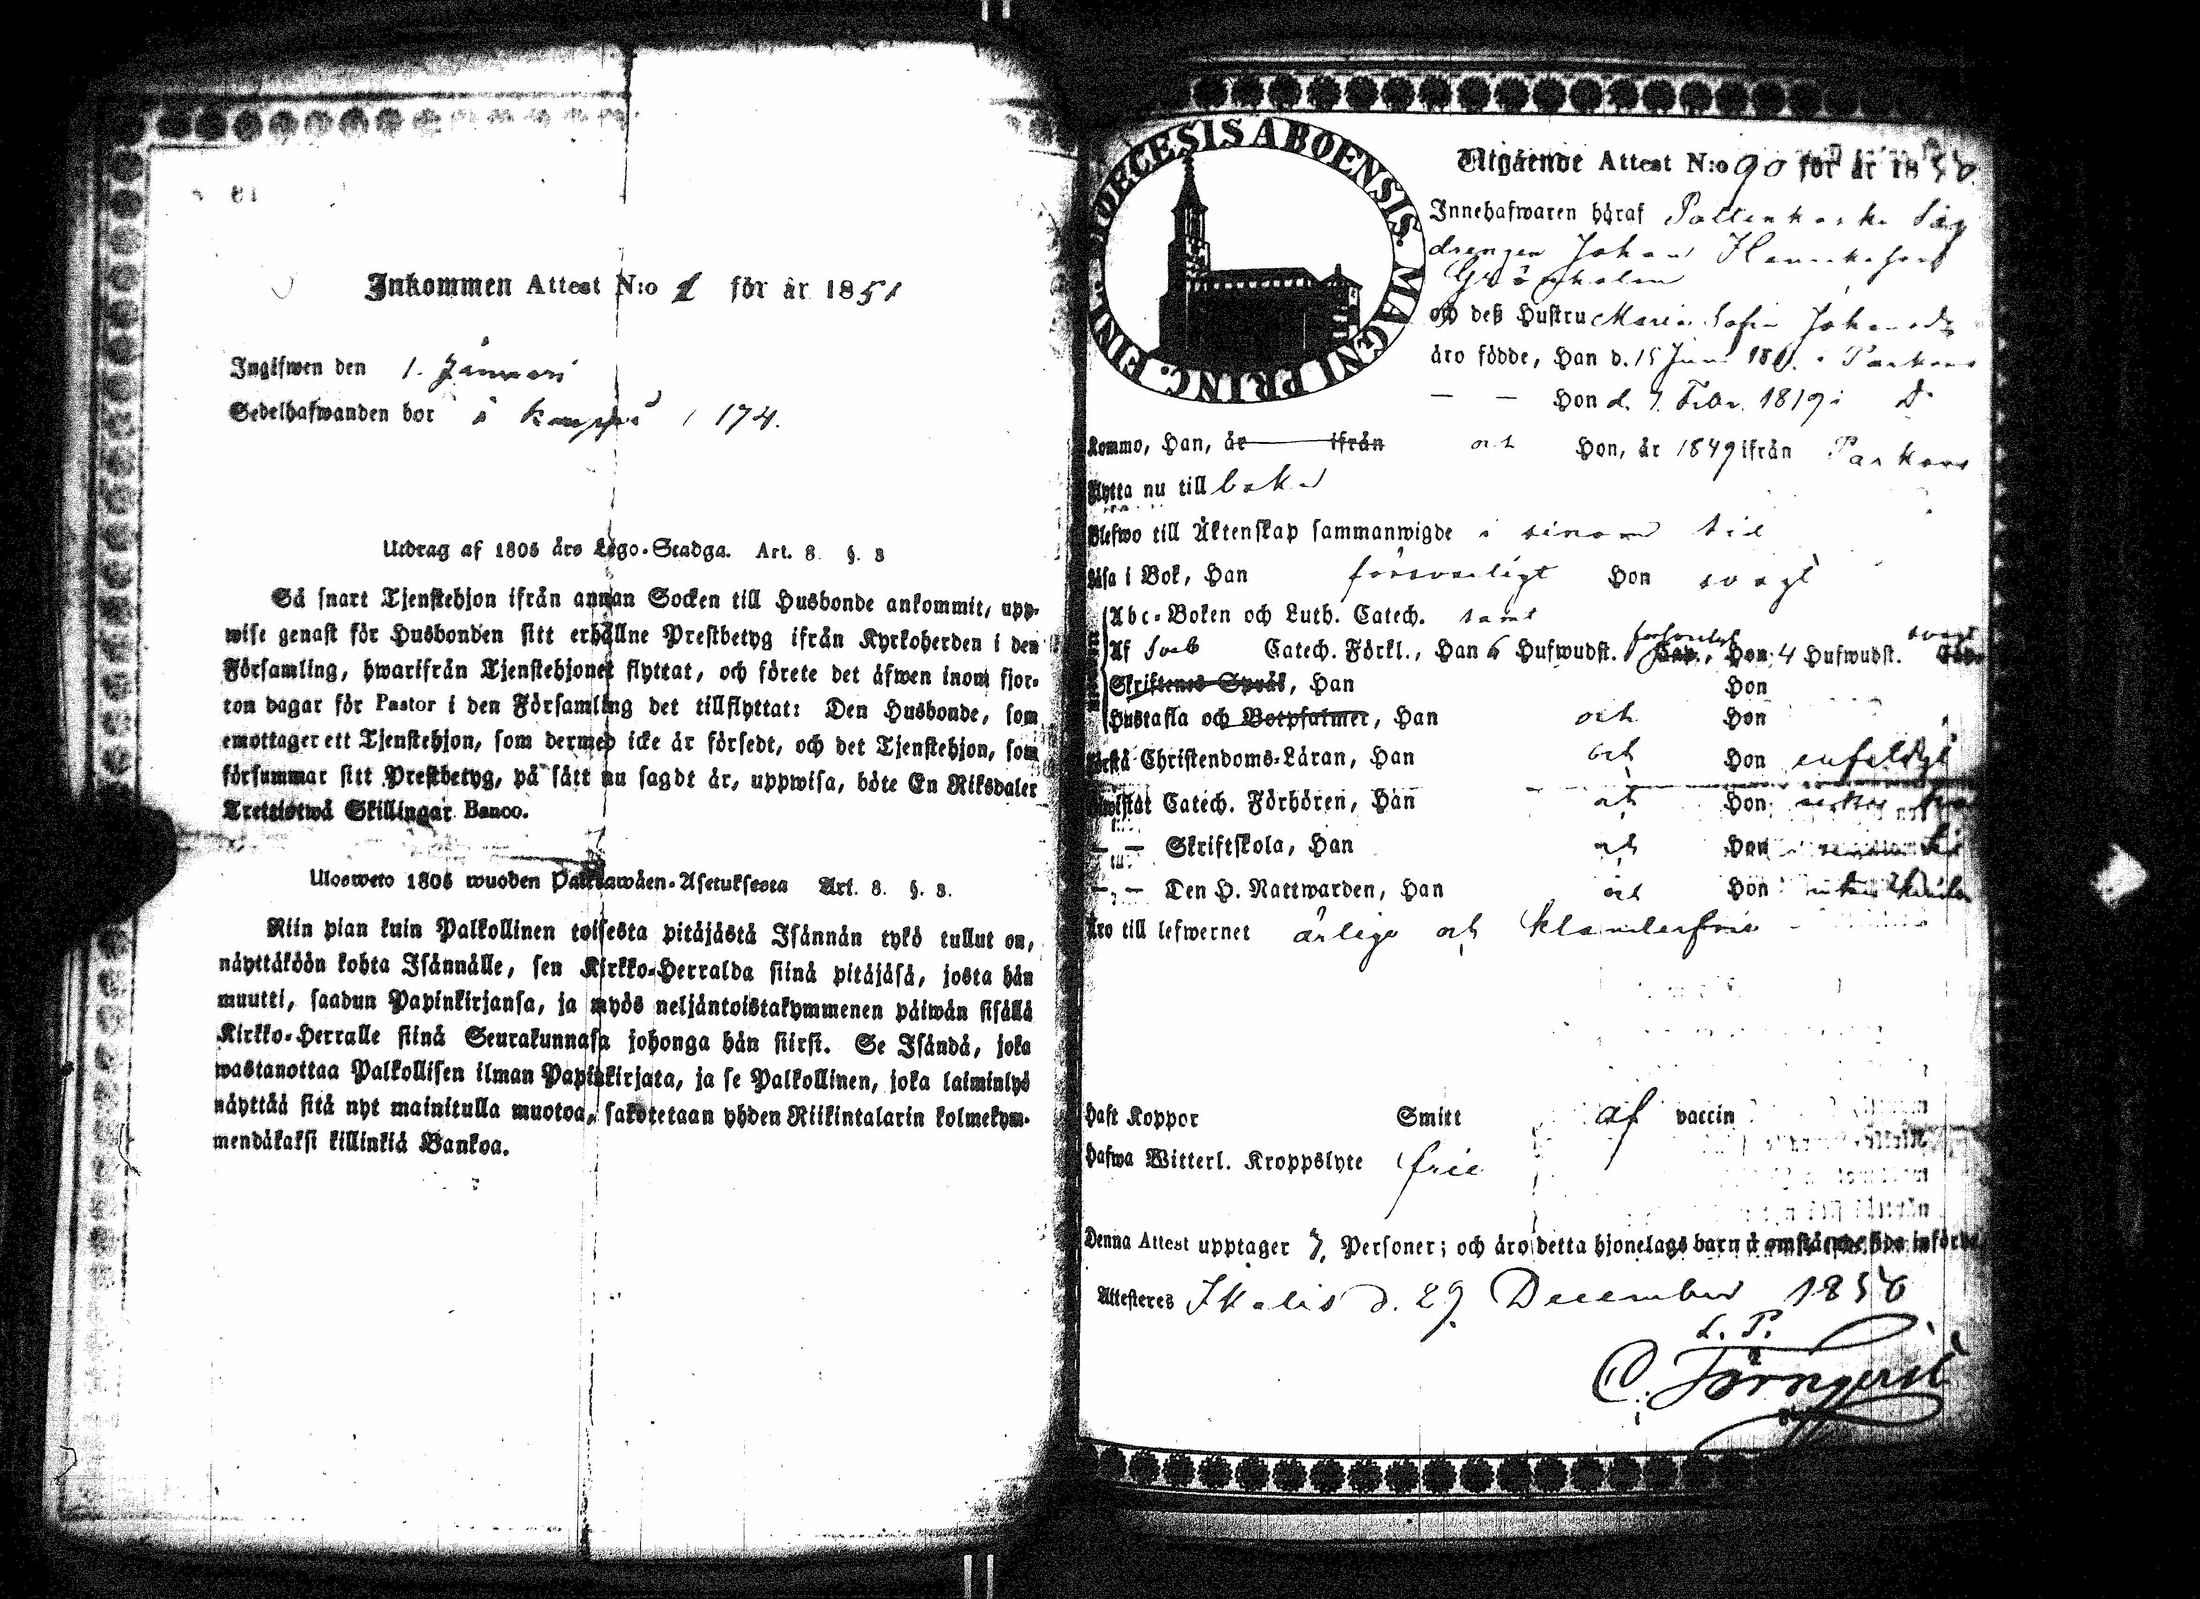 81
Inkommen Attest N:o 1 för år 1851
Ingifwen den 1. Januari
Sedelhafwanden bor å 174.
Utdrag af 1805 års Lego-Stadga. Art. 8. §. 3
Så snart Tjenstehjon ifrån annan Socken till Husbonde ankommit, upp-
wise genast för Husbonden sitt erhållne Prestbetyg ifrån Kyrkoherden i den
Församling, hwarifrån Tjenstehjonet flyttat, och förete det äfwen inom fjor-
ton dagar för Pastor i den Församling det tillflyttat: Den Husbonde, som
emottager ett Tjenstehjon, som dermed icke är försedt, och det Tjenstehjon, som
försummar sitt Prestbetyg, på sätt nu sagdt är, uppwisa, böte En Riksdaler
Trettiotwå Skillingar Banco.
Ulosweto 1805 wuoden Palkkawäen-Asetuksesta Art. 8. §. 3.
Niin pian kuin Palkollinen toisesta pitäjästä Isännän tykö tullut on,
näyttäköön kohta Isännälle, sen Kirkko-Herralda siinä pitäjäsä, josta hän
muutti, saadun Papinkirjansa, ja myös neljäntoistakymmenen päiwän sisällä
Kirkko-Herralle siinä Seurakunnasa johonga hän siirsi. Se Isändä, joka
wastanottaa Palkollisen ilman Papinkirjata, ja se Palkollinen, joka laiminlyö
näyttää sitä nyt mainitulla muotoa, sakotetaan yhden Riikintalarin kolmekym-
mendäkaksi killinkiä Bankoa.
DIOECESIS ABOENSIS. MAGNI PRINC. FINL.
Utgående Attest N:o 90 för år 1850
Innehafwaren häraf
drengen Johan
Grönholm
och deß Hustru Maria Sofia Johansdr
äro födde, Han d. 15 Juni i Parkano
— — Hon d. 7. Febr. 1819 i Do
Komme, Han, år ifrån och Hon, år 1849 ifrån Parkano
Flytta nu till baka
Blefwo till Äktenskap sammanwigde i sinom tid
Läsa i Bok, Han försvarligt Hon svagt
Abc-Boken och Luth. Catech. samt
Af Sveb Catech. Förkl., Han 6 Hufwudst. försvarligt Cap., Hon 4 Hufwudst. svagt Cap.
Skriftenes Språk, Han Hon
Hustafla och Botpsalmer, Han och Hon
Förstå Christendoms-Läran, Han och Hon enfaldigt
Catech. Förhören, Han och Hon
— — Skriftskola, Han och Hon
— — Den H. Nattwarden, Han och Hon
Äro till lefwernet ärlige och klanderfrie
Haft Koppor Smitt af vaccin
Hafwa Witterl. Kroppslyte frie
Denna Attest upptager 7. Personer; och äro detta hjonelags barn å omstående sida införde.
Attesteres Ikalis d. 29 December 1850
L. P.
C. Törnqvist